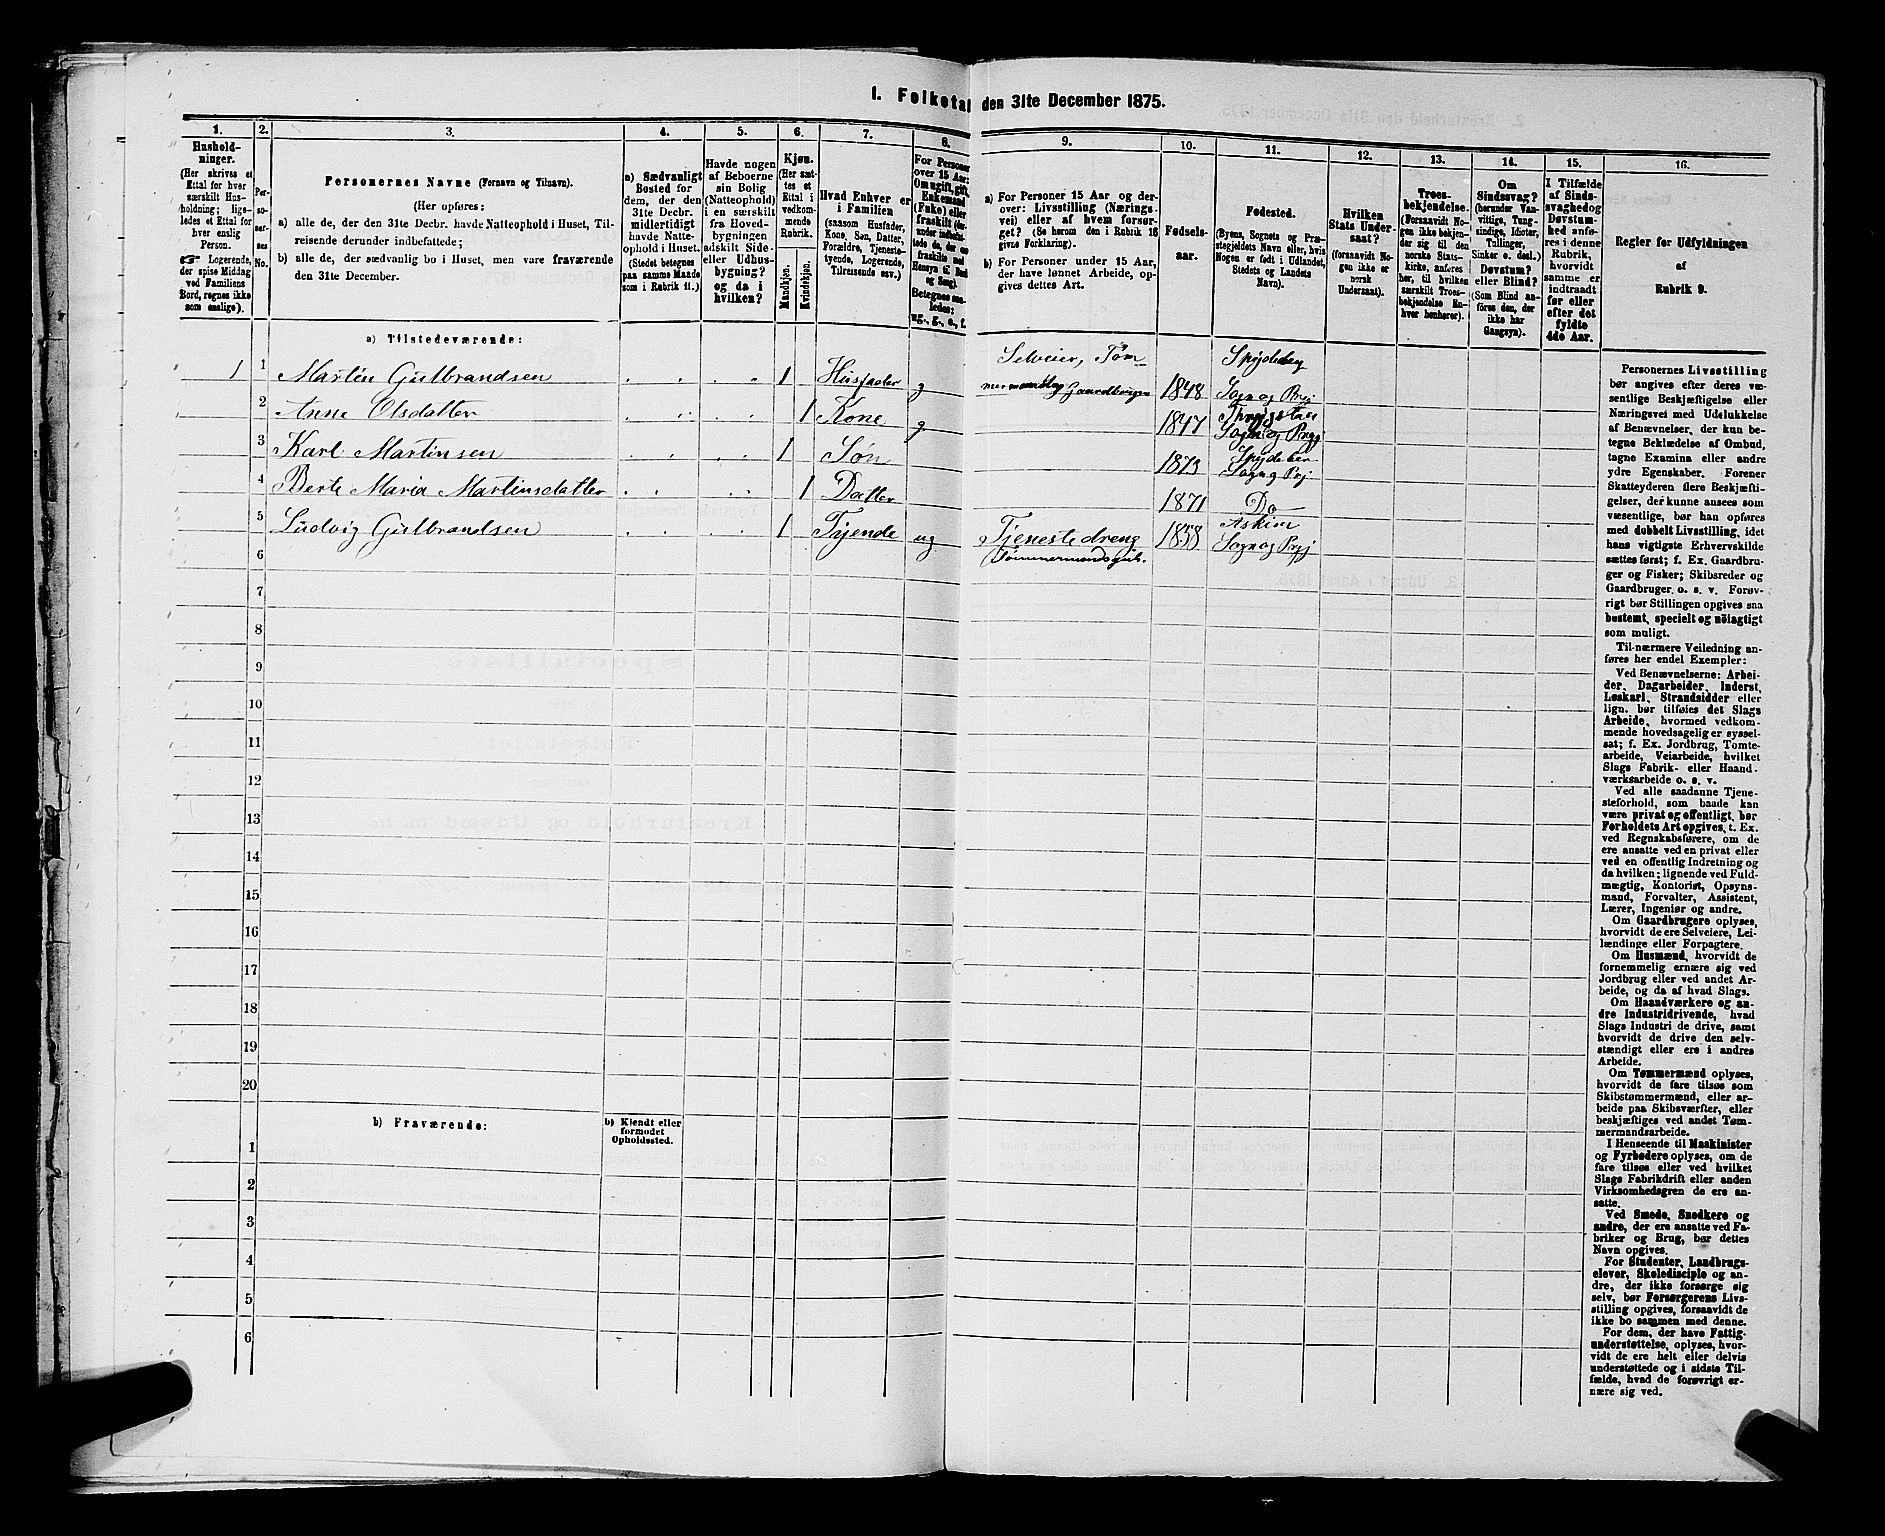 1. Folketal den 31te December 1875.
1. 2. 3. 4. 5. 6. 7. 8. 9. 10. 11. 12. 13. 14. 15. 16.
Hushold-
ninger.
(Her skrives et
Ettal for hver
særskilt Hus-
holdning; lige-
ledes et Ettal for
hver enslig
Person.
☛ Logerende,
der spise Middag
ved Familiens
Bord, regnes ikke
som enslige).
Per-
so-
ner-
nes
No.
Personernes Navne (Fornavn og Tilnavn).
(Her opføres:
a) alle de, der den 31te Decbr. havde Natteophold i Huset, Til-
reisende derunder indbefattede;
b) alle de, der sædvanlig bo i Huset, men vare fraværende
den 31te December.
a) Sædvanligt
Bosted for
dem, der den
31te Decbr.
midlertidigt
havde Natte-
ophold i Huset.
(Stedet betegnes
paa samme Maade
som i Rubrik 11.)
Havde nogen
af Beboerne
sin Bolig
(Natteophold)
i en særskilt
fra Hoved-
bygningen
adskilt Side-
eller Udhus-
bygning?
og da i
hvilken?
Kjøn.
(Her sæt-
tes et
Ettal i
vedkom-
mende
Rubrik.
Mandkjøn.
Kvindekjøn.
Hvad Enhver er
i Familien
(saasom Husfader,
Kone, Søn, Datter,
Forældre, Tjeneste-
tyende, Logerende,
Tilreisende osv.)
For Personer
over 15 Aar:
Om ugift, gift,
Enkemand
(Enke) eller
fraskilt
Betegnes saa-
ledes:
ug., g., e., f.
a) For Personer 15 Aar og der-
over: Livsstilling (Nærings-
vei) eller af hvem forsør-
get? (Se herom den i Rubrik 16
givne Forklaring).
b) For Personer under 15 Aar,
der have lønnet Arbeide, op-
gives dettes Art.
Fødsels-
aar.
Fødested.
(Byens, Sognets og Præ-
stegjeldets Navn eller, hvis
Nogen er født i Udlandet,
Stedets og Landets
Navn).
Hvilken
Stats Under-
saat?
(forsaavidt No-
gen ikke er
norsk
Undersaat).
Troes-
bekjendelse.
(Forsaavidt No-
gen ikke bekjen-
der sig til den
norske Stats-
kirke, anføres
her, til hvilken
særskilt Troes-
bekjendelse En-
hver henhører).
Om
Sindssvag?
(herunder Van-
vittige, Tung-
sindige, Idioter,
Tullinger,
Sinker o. desl.)
Døvstum?
eller Blind?
(Som Blind an-
føres den, der
ikke har
Gangsyn).
I Tilfælde
af Sinds-
svaghed og
Døvstum-
hed anfø-
res i denne
Rubrik,
hvorvidt
samme er
indtraadt
før eller
efter det
fyldte
4de Aar.
Regler for Udfyldningen
af
Rubrik 9.
a) Tilstedeværende:
1 1 Martin Gulbrandsen 1 Husfader g Selveier, Tøm 1848 Spydeberg
Gaardbruger Sogn og Prgj
2 Anne Olsdatter 1 Kone g 1847 Sogn og Prgj
3 Karl Martinsen 1 Søn 1873 Spydeber
Sogn g Prj
4 Berte Maria Martinsdatter 1 Datter 1871 Do
5 Ludvig Gulbrandsen 1 Tyende ug Tjenestedreng 1858 Askim
Sogn og Prgj
6
7
8
9
10
11
12
13
14
15
16
17
18
19
20
b) Fraværende:
b) Kjendt eller
formodet
Opholdssted.
1
2
3
4
5
6
Personernes Livsstilling
bør angives efter deres væ-
sentlige Beskjæftigelse eller
Næringsvei med Udelukkelse
af Benævnelser, der kun be-
tegne Beklædelse af Ombud,
tagne Examina eller andre
ydre Egenskaber. Forener
Skatteyderen flere Beskjæfti-
gelser, der kunne ansees som
væsentlige, bør han opføres
med dobbelt Livsstilling, idet
hans vigtigste Erhvervskilde
sættes først; f. Ex. Gaardbru-
ger og Fisker; Skibsreder og
Gaardbruger o. s. v. Forøv-
rigt bør Stillingen opgives saa
bestemt, specielt og nøiagtigt
som muligt.
Til nærmere Veiledning an-
føres her endel Exempler:
Ved Benævnelserne: Arbei-
der, Dagarbeider, Inderst,
Løskarl, Strandsidder eller
lign. bør tilføies det Slags
Arbeide, hvormed vedkom-
mende hovedsagelig er syssel-
sat; f. Ex. Jordbrug, Tomte-
arbeide, Veiarbeide, hvilket
Slags Fabrik- eller Haand-
værksarbeide o. s. v.
Ved alle saadanne Tjene-
steforhold, som baade kan
være privat og offentligt, bør
Forholdets Art opgives, t. Ex.
ved Regnskabsførere, om de
ere ansatte ved en privat eller
ved en offentlig Indretning og
da hvilken; lignende ved Fuld-
mægtig, Kontorist, Opsyns-
mand, Forvalter, Assistent,
Lærer, Ingeniør og andre.
Om Gaardbrugere oplyses,
hvorvidt de ere Selveiere, Lei-
lændinge eller Forpagtere.
Om Husmænd, hvorvidt de
fornemmelig ernære sig ved
Jordbrug eller ved andet Ar-
beide, og da af hvad Slags.
Om Haandværkere og an-
dre Industridrivende, hvad
Slags Industri de drive, samt
hvorvidt de drive den selv-
stændigt eller ere i andres
Arbeide.
Om Tømmermænd oplyses,
hvorvidt de fare tilsøs som
Skibstømmermænd, eller ar-
beide paa Skibsværfter, eller
beskjæftiges ved andet Tøm-
mermandsarbeide.
I Henseende til Maskinister
og Fyrbødere oplyses, om de
fare tilsøs eller ved hvilket
Slags Fabrikdrift eller anden
Virksomhedsgren de ere an-
satte.
Ved Smede, Snedkere og
andre, der ere ansatte ved Fa-
briker og Brug, bør dettes
Navn opgives.
For Studenter, Landbrugs-
elever, Skoledisciple og an-
dre, der ikke forsørge sig
selv, bør Forsørgerens Livs-
stilling opgives, forsaavidt de
ikke bo sammen med denne.
For dem, der have Fattig-
understøttelse, oplyses, hvor-
vidt de ere helt eller delvis
understøttede og i sidste Til-
fælde, hvad de forøvrigt er-
nære sig ved.